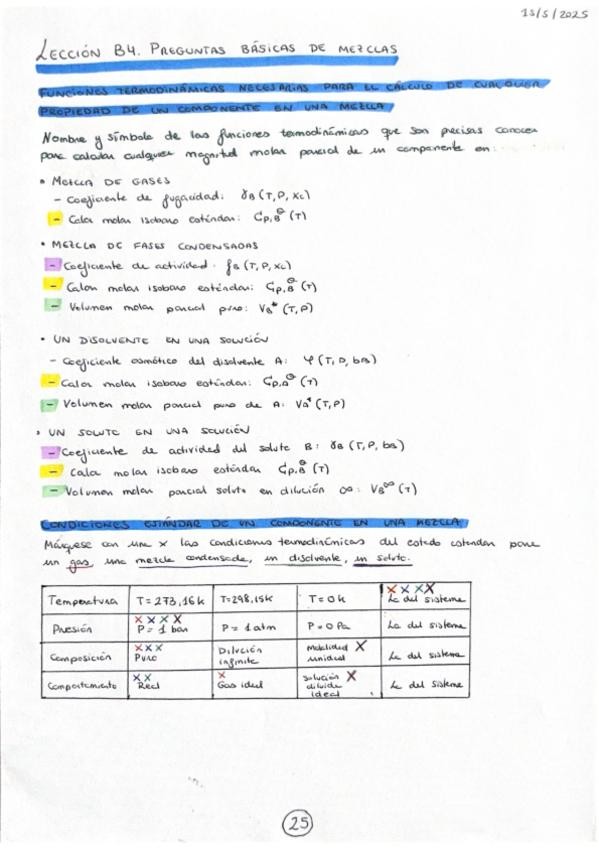 13/5/2025
LECCIÓN B4. PREGUNTAS BÁSICAS DE MEZCLAS
FUNCIONES TERMODINÁMICAS NECESARIAS PARA EL CÁLCULO DE CUALQUIER
PROPIEDAD DE UN COMPONENTE EN UNA MEZCLA
Nombre y símbolo de las funciones termodinámicas que son precisas conocer
para calcular cualquier magnitud molar parcial de un componente en:
• MEZCLA DE GASES
- Coeficiente de fugacidad: γB (T, P, xc)
- Calor molar isobaro estándar: Cp,B⊖ (T)
• MEZCLA DE FASES CONDENSADAS
- Coeficiente de actividad: fB (T, P, xc)
- Calor molar isobaro estándar: Cp,B⊖ (T)
- Volumen molar parcial puro: VB* (T, P)
• UN DISOLVENTE EN UNA SOLUCIÓN
- Coeficiente osmótico del disolvente A: φ (T, P, bB)
- Calor molar isobaro estándar: Cp,A⊖ (T)
- Volumen molar parcial puro de A: VA* (T, P)
• UN SOLUTO EN UNA SOLUCIÓN
- Coeficiente de actividad del soluto B: γB (T, P, bB)
- Calor molar isobaro estándar Cp,B⊖ (T)
- Volumen molar parcial soluto en dilución ∞: VB∞ (T)
CONDICIONES ESTÁNDAR DE UN COMPONENTE EN UNA MEZCLA
Márquese con una x las condiciones termodinámicas del estado estándar para
un gas, una mezcla condensada, un disolvente, un soluto.
Temperatura T = 273,16K T=298,15K T = 0 K X X X X La del sistema
Presión X X X X P = 1 bar P = 1 atm P = 0 Pa La del sistema
Composición X X X Puro Dilución infinita Molalidad unidad X La del sistema
Comportamiento X X Real X Gas ideal Solución diluida ideal X La del sistema
25